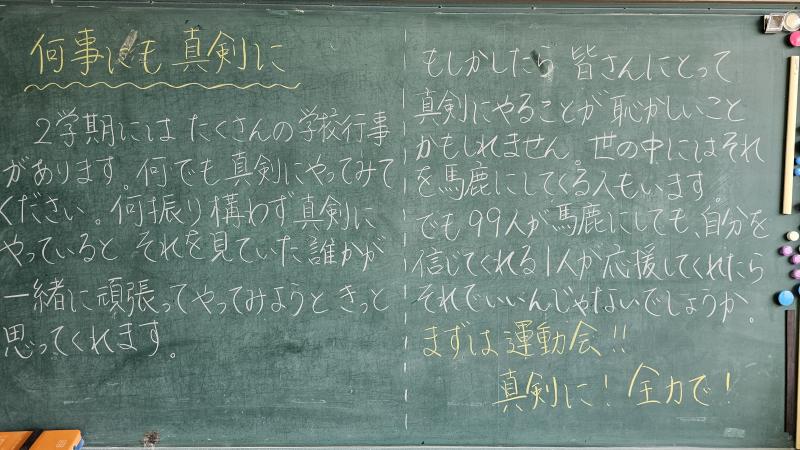 何事にも真剣に
2学期にはたくさんの学校行事
があります。何でも真剣にやってみて
ください。何振り構わず真剣に
やっていると それを見ていた誰かが
一緒に頑張ってやってみようときっと
思ってくれます。
もしかしたら 皆さんにとって
真剣にやることが恥かしいこと
かもしれません。世の中にはそれ
を馬鹿にしてくる人もいます。
でも99人が馬鹿にしても、自分を
信じてくれる1人が応援してくれたら
それでいいんじゃないでしょうか。
まずは運動会!!
真剣に!全力で!